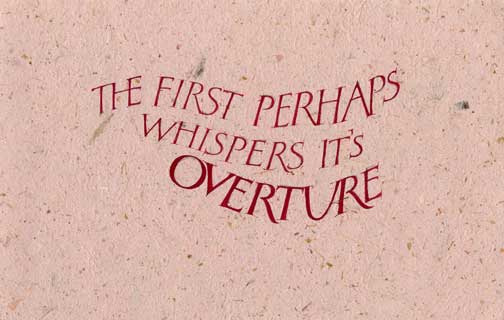 THE FIRST PERHAPS
WHISPERS IT'S
OVERTURE